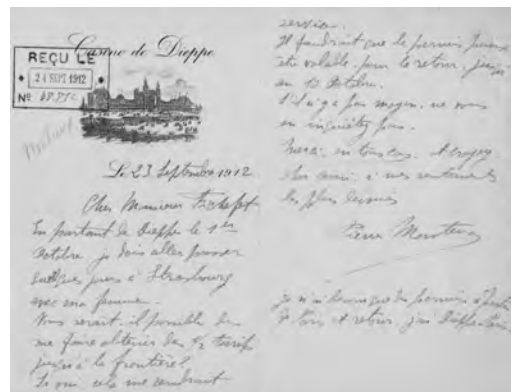 Casino de Dieppe
REÇU LE
24 SEPT 1912
Nº
Le 23 Septembre 1912
Cher Monsieur
En partant de Dieppe le 1er
Octobre je dois aller passer
quelques jours à Strasbourg
avec ma femme.
Vous serait-il possible de
me faire obtenir des ½ tarifs
jusqu'à la frontière?
Si oui cela me rendrait
service.
Il faudrait que le permis puisse
être valable pour le retour, jusqu'
au Octobre.
S'il n'y a pas moyen, ne vous
en inquiétez pas.
Merci en tous cas, et croyez
cher ami à mes sentiments
les plus
Pierre